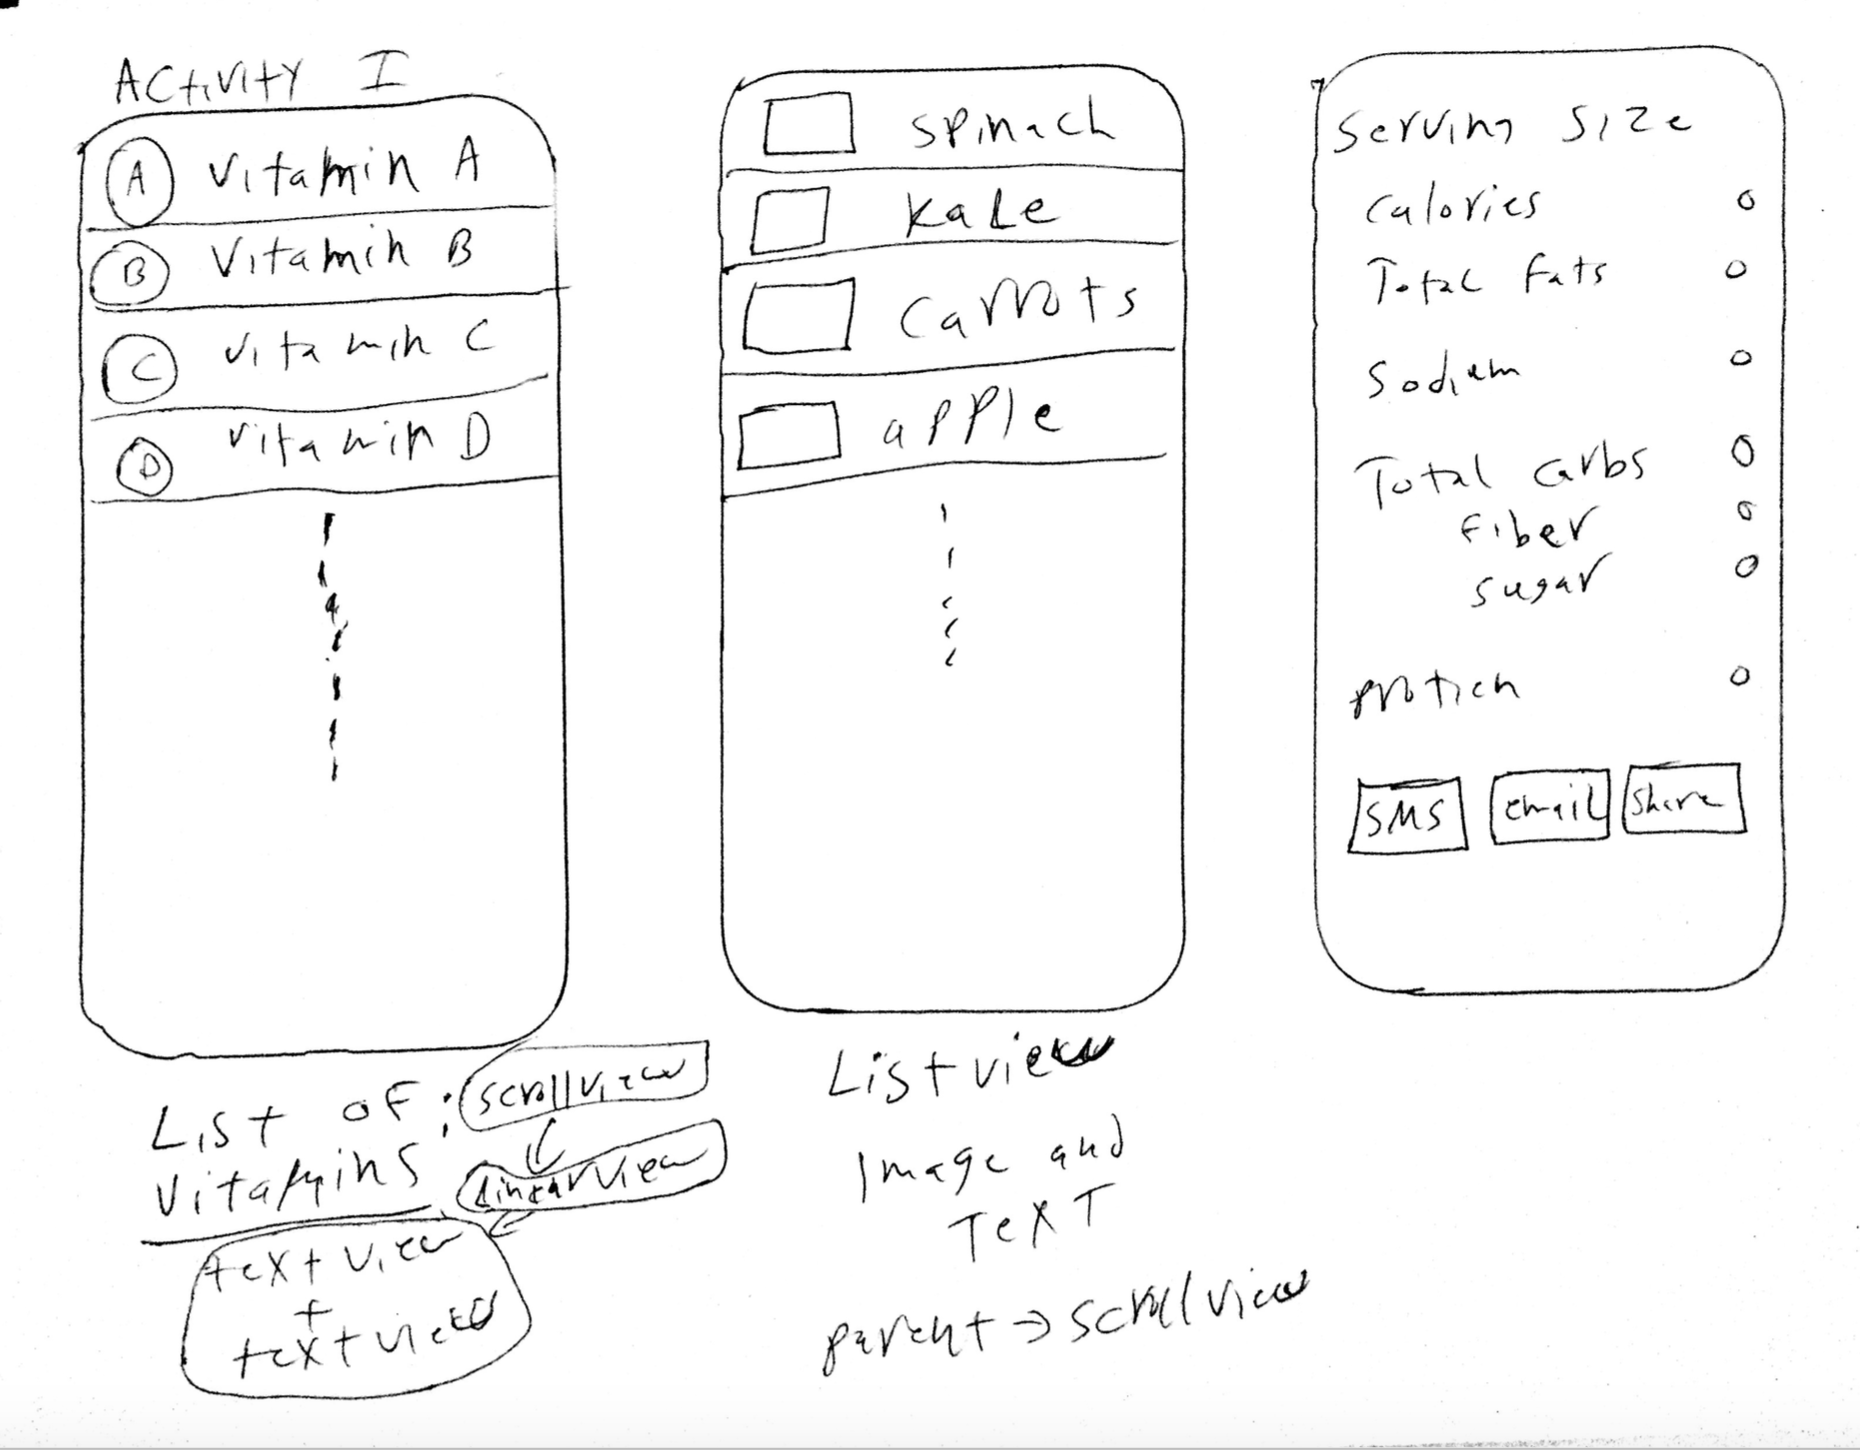 Activity I
A Vitamin A
B Vitamin B
C Vitamin C
D Vitamin D
List of :
Vitamins
scrollview
linearview
text view
+
text view
spinach
kale
carrots
apple
List view
Image and
Text
parent → scrollview
Serving size
Calories 0
Total fats 0
Sodium 0
Total carbs 0
fiber 0
sugar 0
protien 0
SMS email share